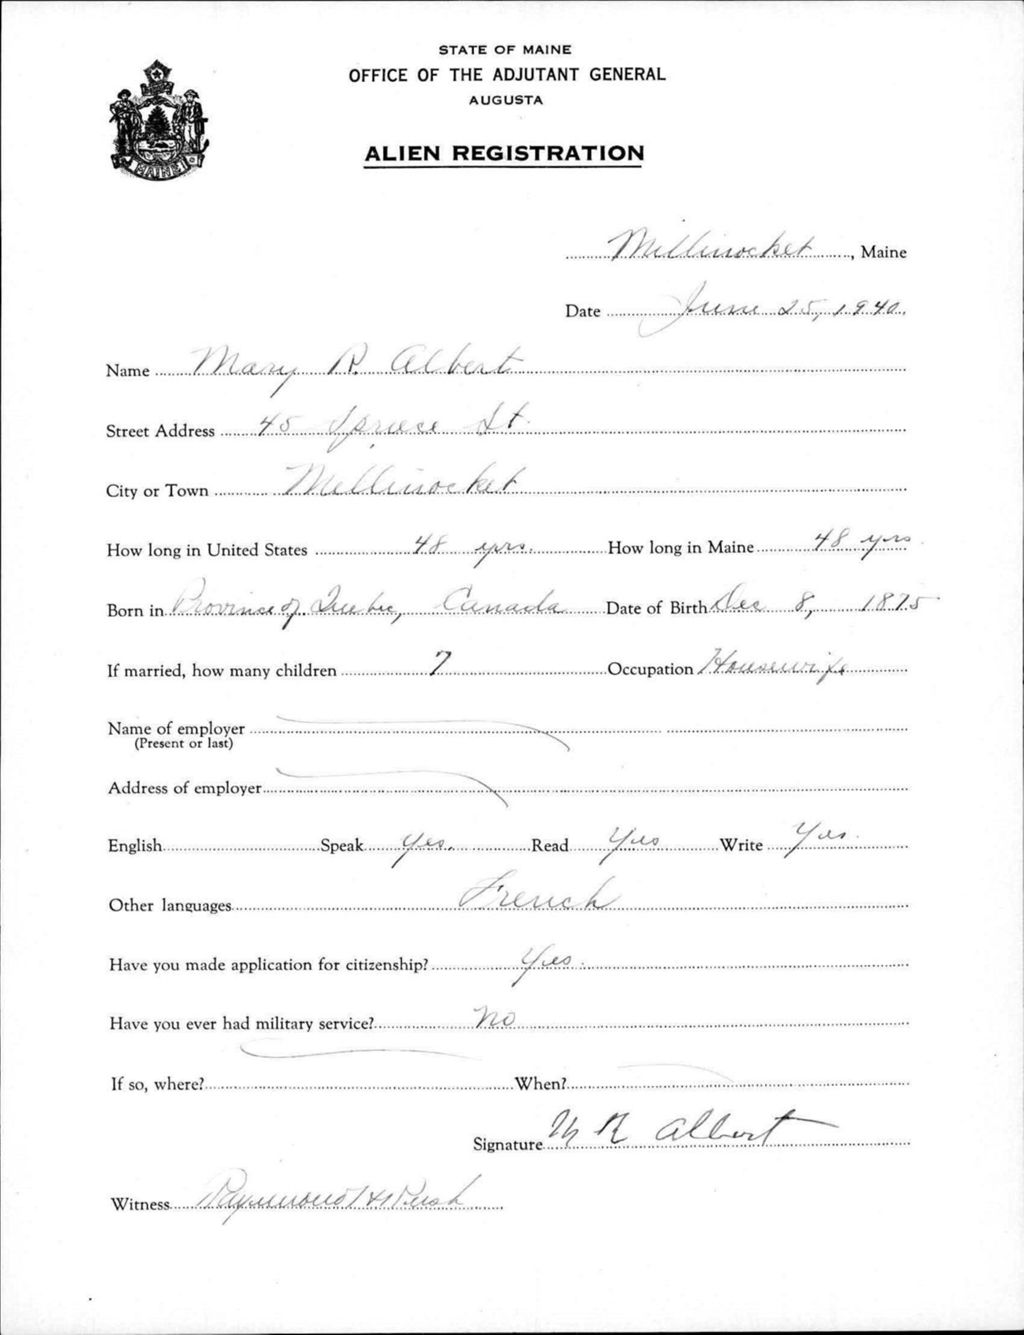 STATE OF MAINE
OFFICE OF THE ADJUTANT GENERAL
AUGUSTA
ALIEN REGISTRATION
MAINE
Millinocket, Maine
Date June 25, 1940.
Name Mary R. Albert
Street Address 45 Spruce St.
City or Town Millinocket
How long in United States 48 yrs. How long in Maine 48 yrs
Born in Province of Quebec, Canada Date of Birth Dec 8, 1875
If married, how many children 7 Occupation Housewife
Name of employer
(Present or last)
Address of employer
English Speak yes. Read Yes Write Yes.
Other languages French
Have you made application for citizenship? Yes.
Have you ever had military service? No
If so, where? When?
Signature M R Albert
Witness Raymond H